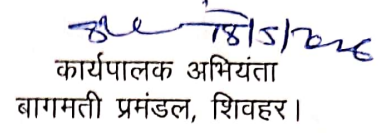 18/5/2026
कार्यपालक अभियंता
बागमती प्रमंडल, शिवहर।